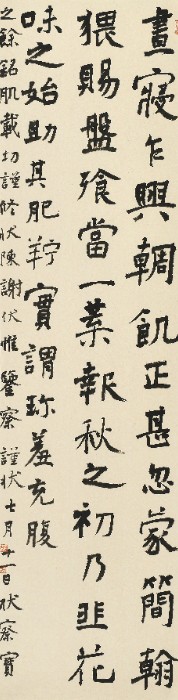 晝寢乍興輖飢正甚忽蒙簡翰
猥賜盤飧當一葉報秋之初乃韭花
味之始助其肥羜實謂珍羞充腹
之餘銘肌載切謹修狀陳謝伏惟鑒察謹狀七月十一日狀